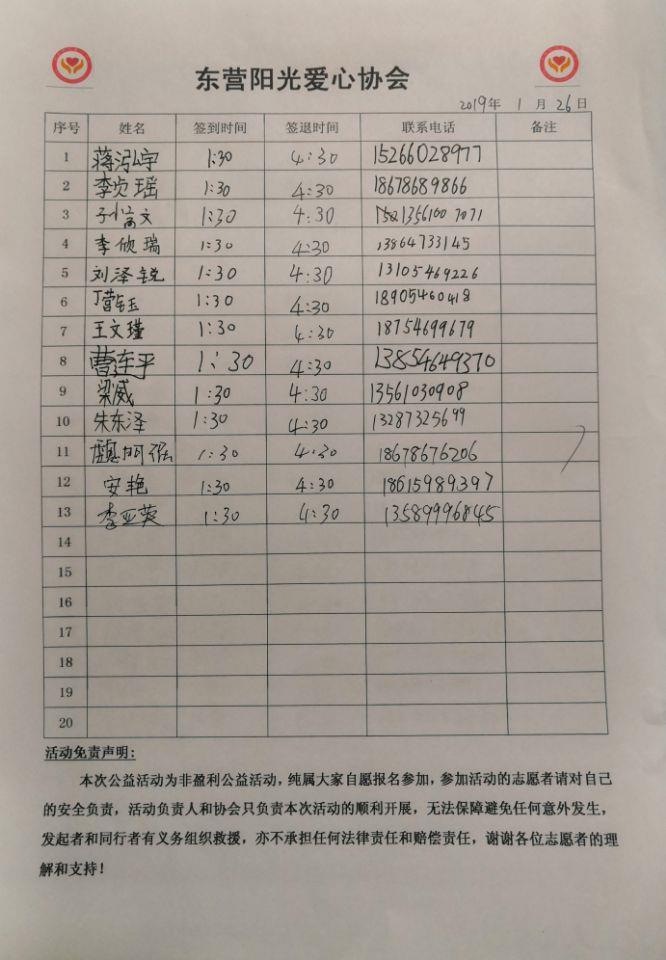 东营阳光爱心协会
2019年 1 月 26 日
序号 姓名 签到时间 签退时间 联系电话 备注
1 蒋泓宇 1:30 4:30 15266028977
2 李贞瑶 1:30 4:30 18678689866
3 文 1:30 4:30 13561007071
4 李欣瑞 1:30 4:30 13864733145
5 刘泽锐 1:30 4:30 13105469226
6 1:30 4:30 18905460418
7 王文瑾 1:30 4:30 18754699679
8 曹连平 1:30 4:30 13854649370
9 梁威 1:30 4:30 13561030908
10 朱东泽 1:30 4:30 13287325699
11 1:30 4:30 18678676206
12 安艳 1:30 4:30 18615989397
13 李亚英 1:30 4:30 13589996845
14
15
16
17
18
19
20
活动免责声明:
本次公益活动为非盈利公益活动，纯属大家自愿报名参加，参加活动的志愿者请对自己
的安全负责，活动负责人和协会只负责本次活动的顺利开展，无法保障避免任何意外发生，
发起者和同行者有义务组织救援，亦不承担任何法律责任和赔偿责任，谢谢各位志愿者的理
解和支持！